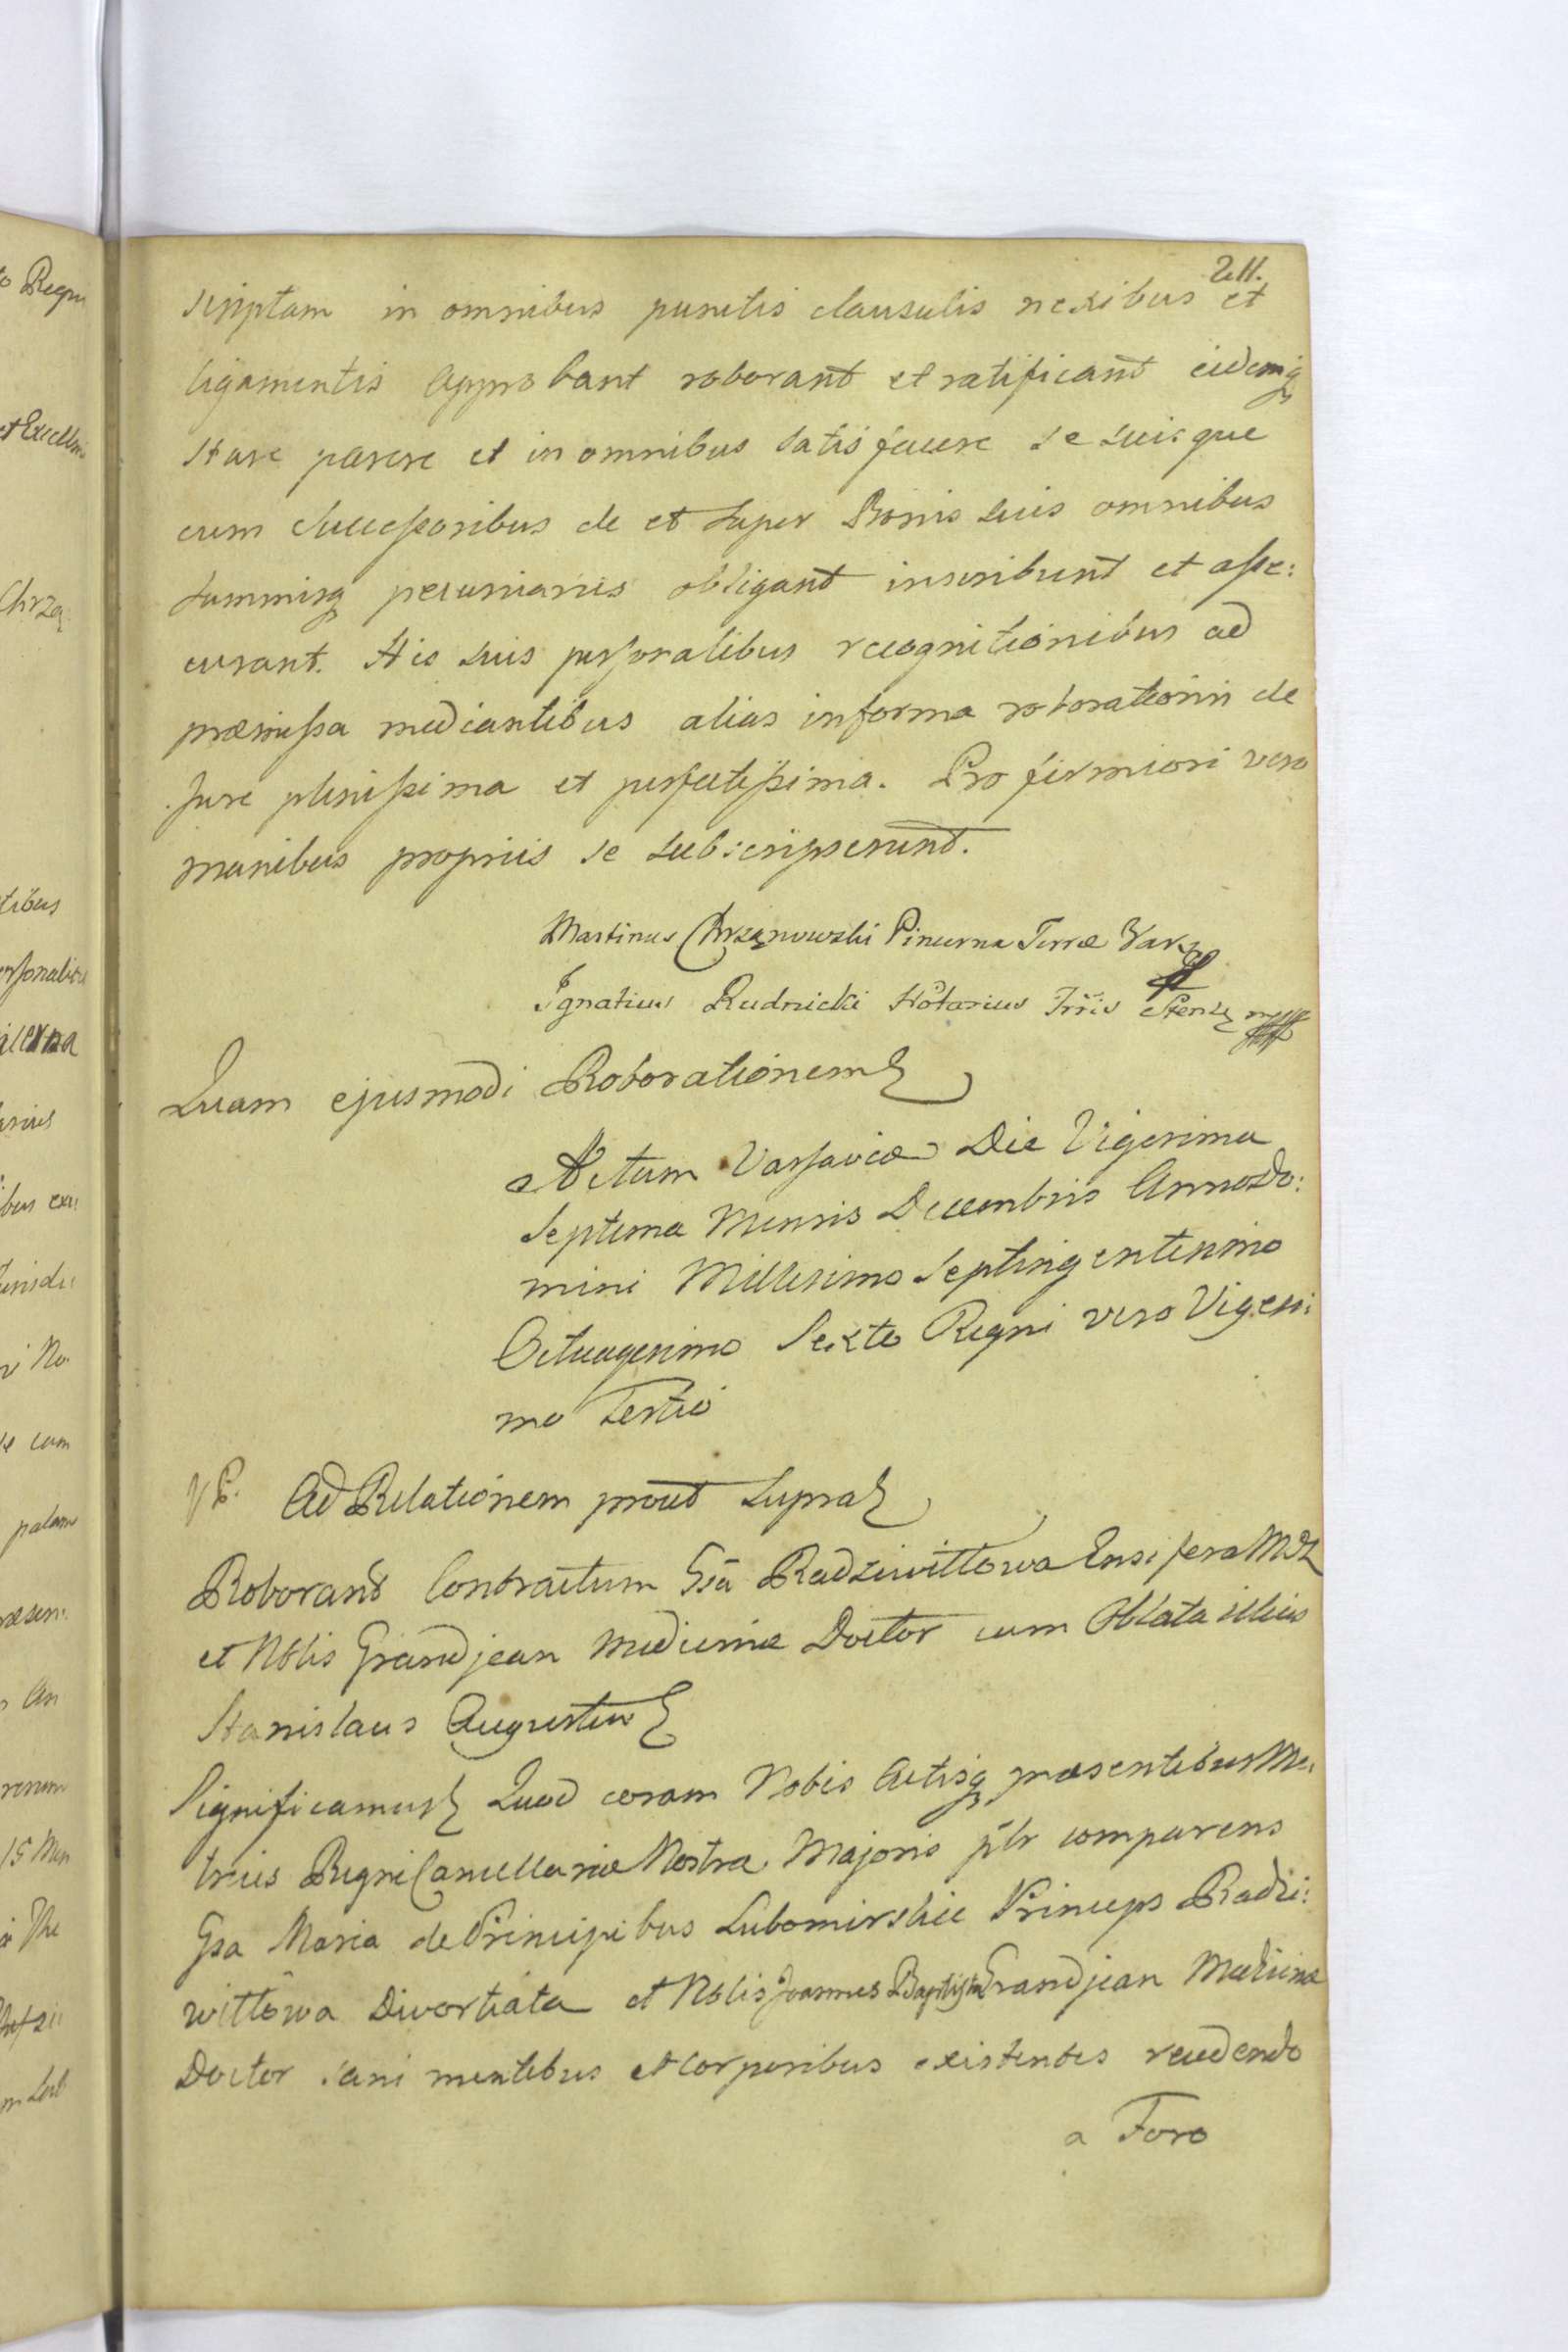 211.
scriptam in omnibus punctis clausulis nexibus et
ligamentis Approbant roborant et ratificant eidemq
stare parere et in omnibus satisfacere se suisque
cum Successoribus de et super Bonis suis omnibus
summisq pecuniariis obligant inscribunt et asse:
curant. His suis personalibus recognitionibus ad
præmissa mediantibus alias in forma roborationis de
Jure plenissima et perfectissima. Pro firmiori vero
manibus propriis se subscripserunt.
Martinus Chrzanowski Pincerna Terræ Var
Ignatius Rudnicki Notarius Trris Stenz
Quam ejusmodi Roborationem
Actum Varsaviæ Die Vigesima
Septima Mensis Decembris Anno Do:
mini Millesimo Septingentesimo
Octuagesimo Sexto Regni vero Vigesi:
mo Tertio
Ad Relationem prout supra
Roborant Contractum Gsa Radziwiłłowa Ensifera
et Nblis Grandjean Medicinæ Doctor cum Oblata illius
Stanislaus Augustus
Significamus Quod coram Nobis Actisq præsentibus Me:
tricis Regni Cancellariæ Nostræ Majoris plr comparens
Gsa Maria de Principibus Lubomirskie Princeps Radzi:
wiłłowa Divortiata et Nblis Joannes Baptista Grandjean Medicinæ
Doctor sani mentibus et corporibus existentes recedendo
a Foro
to Regni
et Excellen
Chrzą
tibus
ersonalibus
arius
palam
15 Men